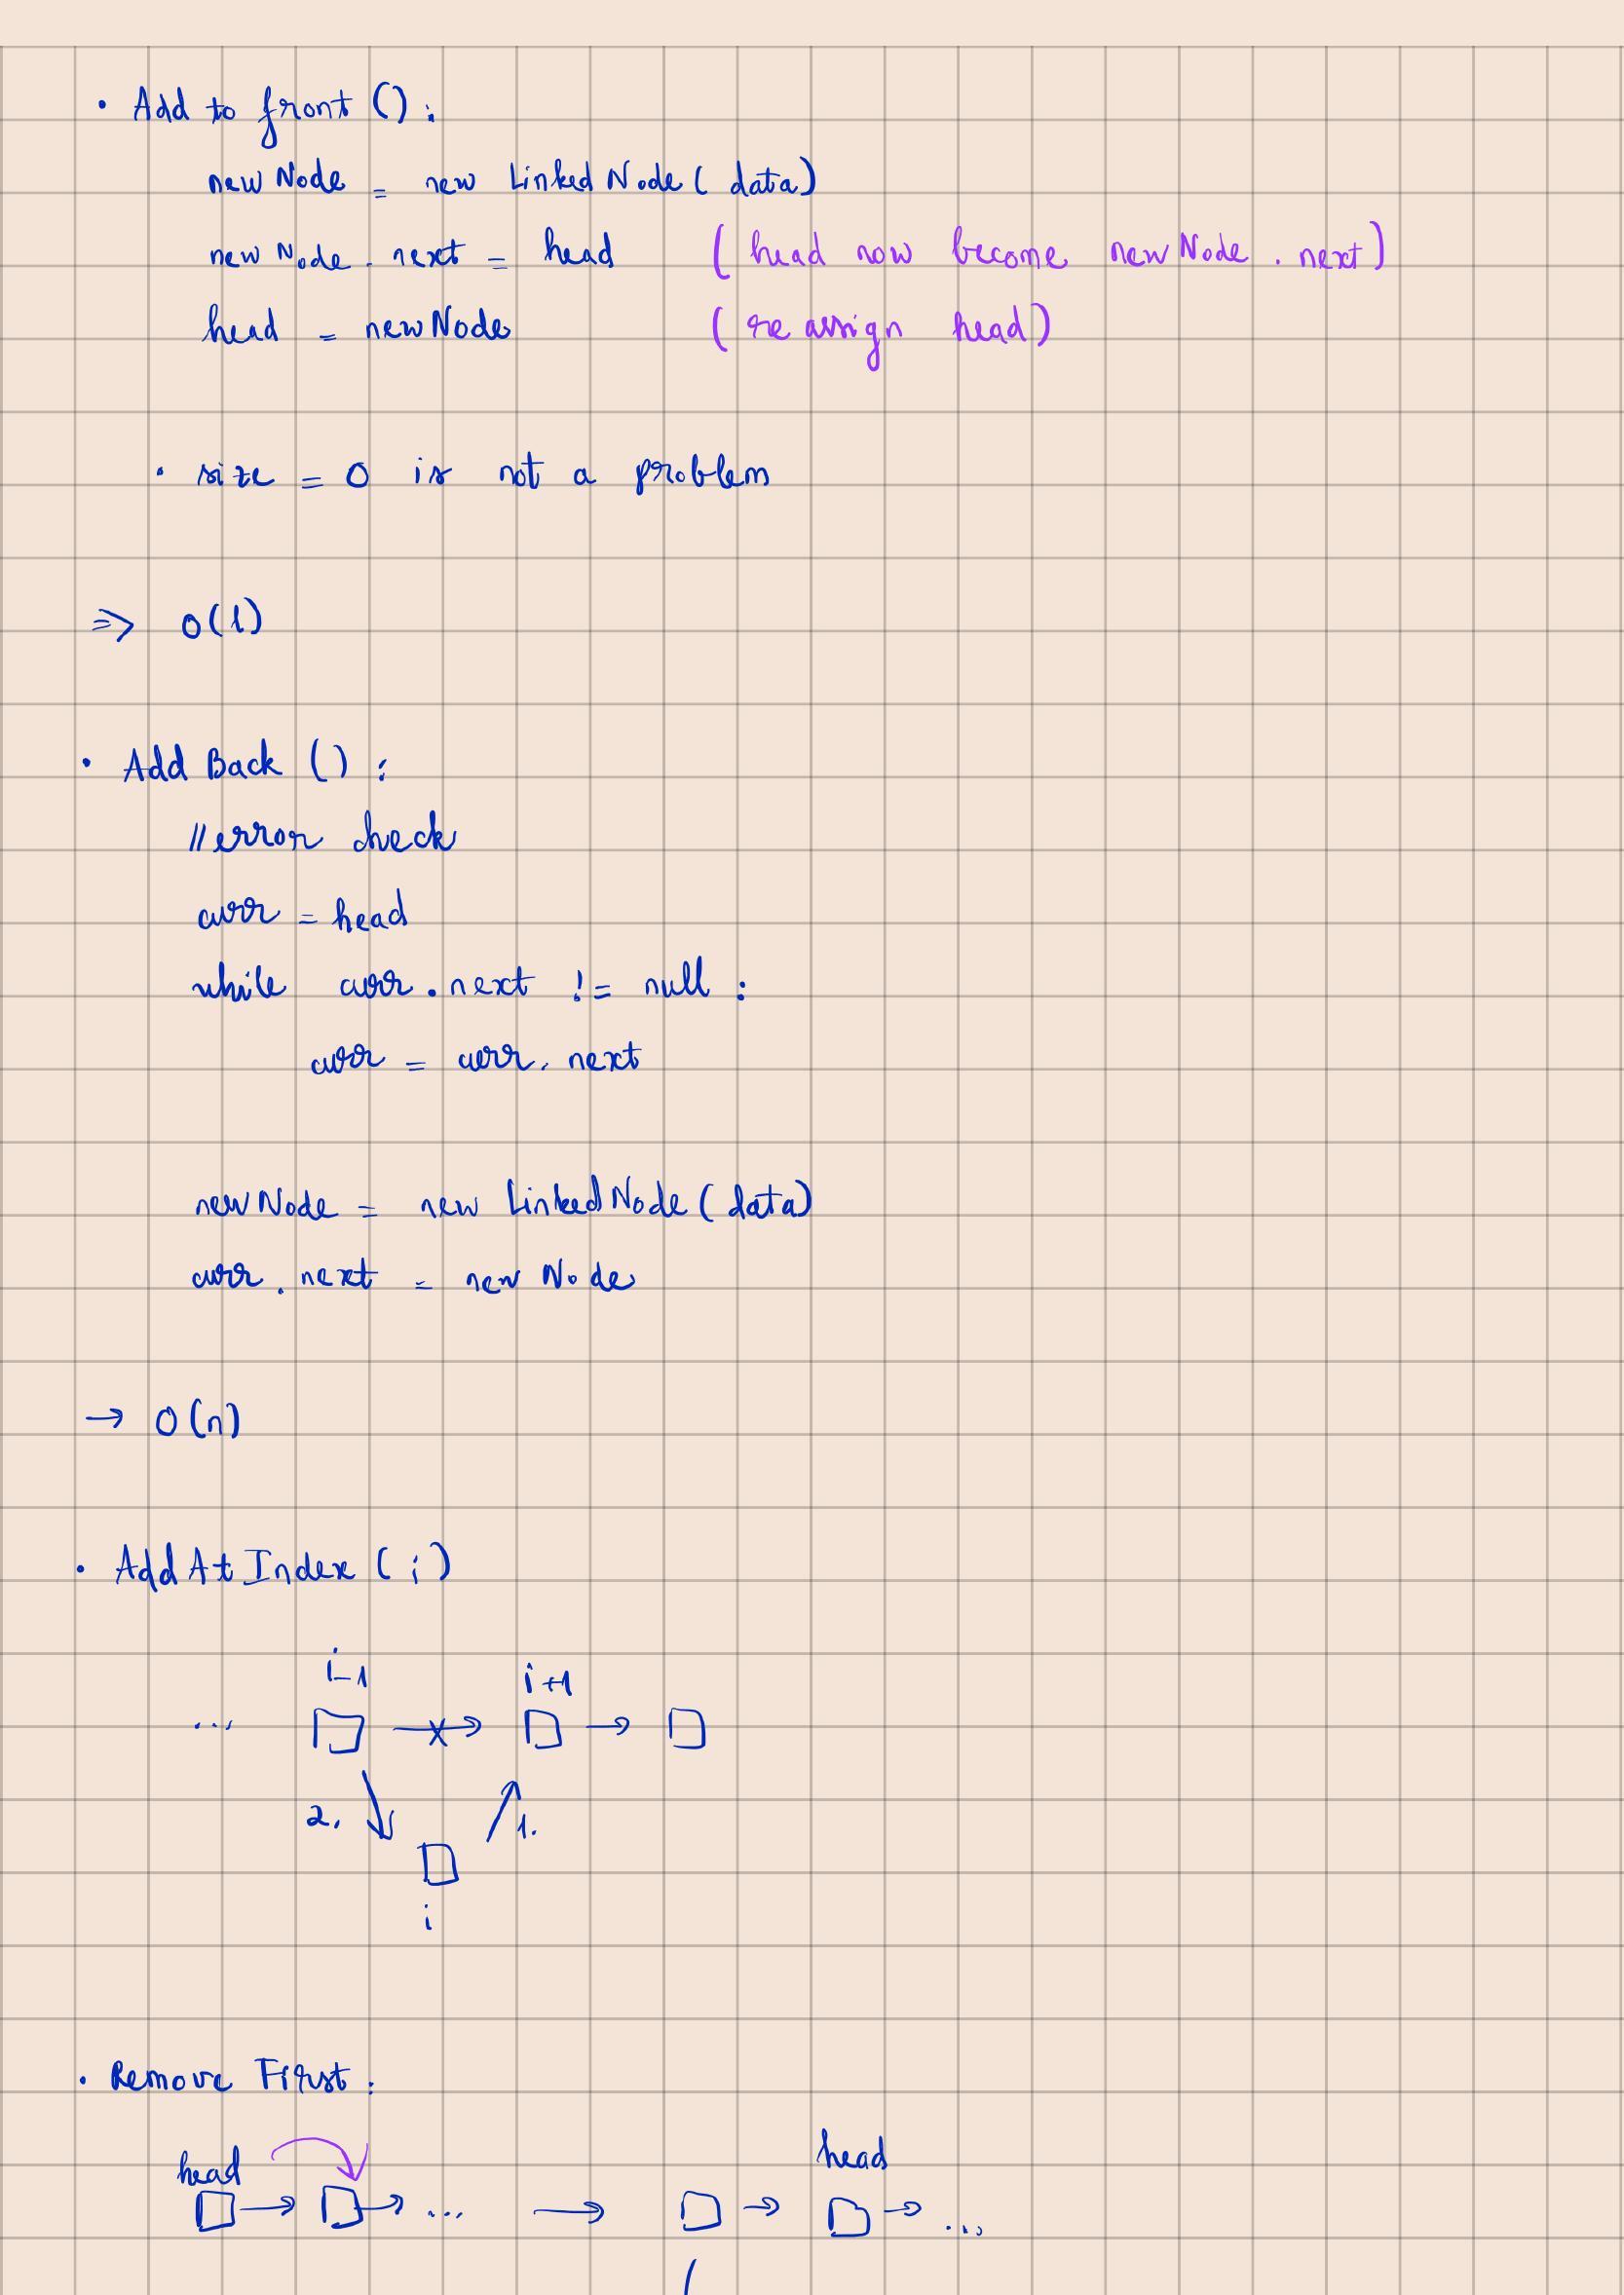 • Add to front () :
newNode = new LinkedNode( data)
newNode . next = head ( head now become newNode . next )
head = newNode ( re assign head )
• size = 0 is not a problem
=> O(1)
• Add Back () :
//error check
curr = head
while curr . next != null :
curr = curr . next
newNode = new LinkedNode( data)
curr . next = new Node
→ O(n)
• Add At Index ( i )
i-1 i+1
...
2. 1.
i
• Remove First :
head head
... ...